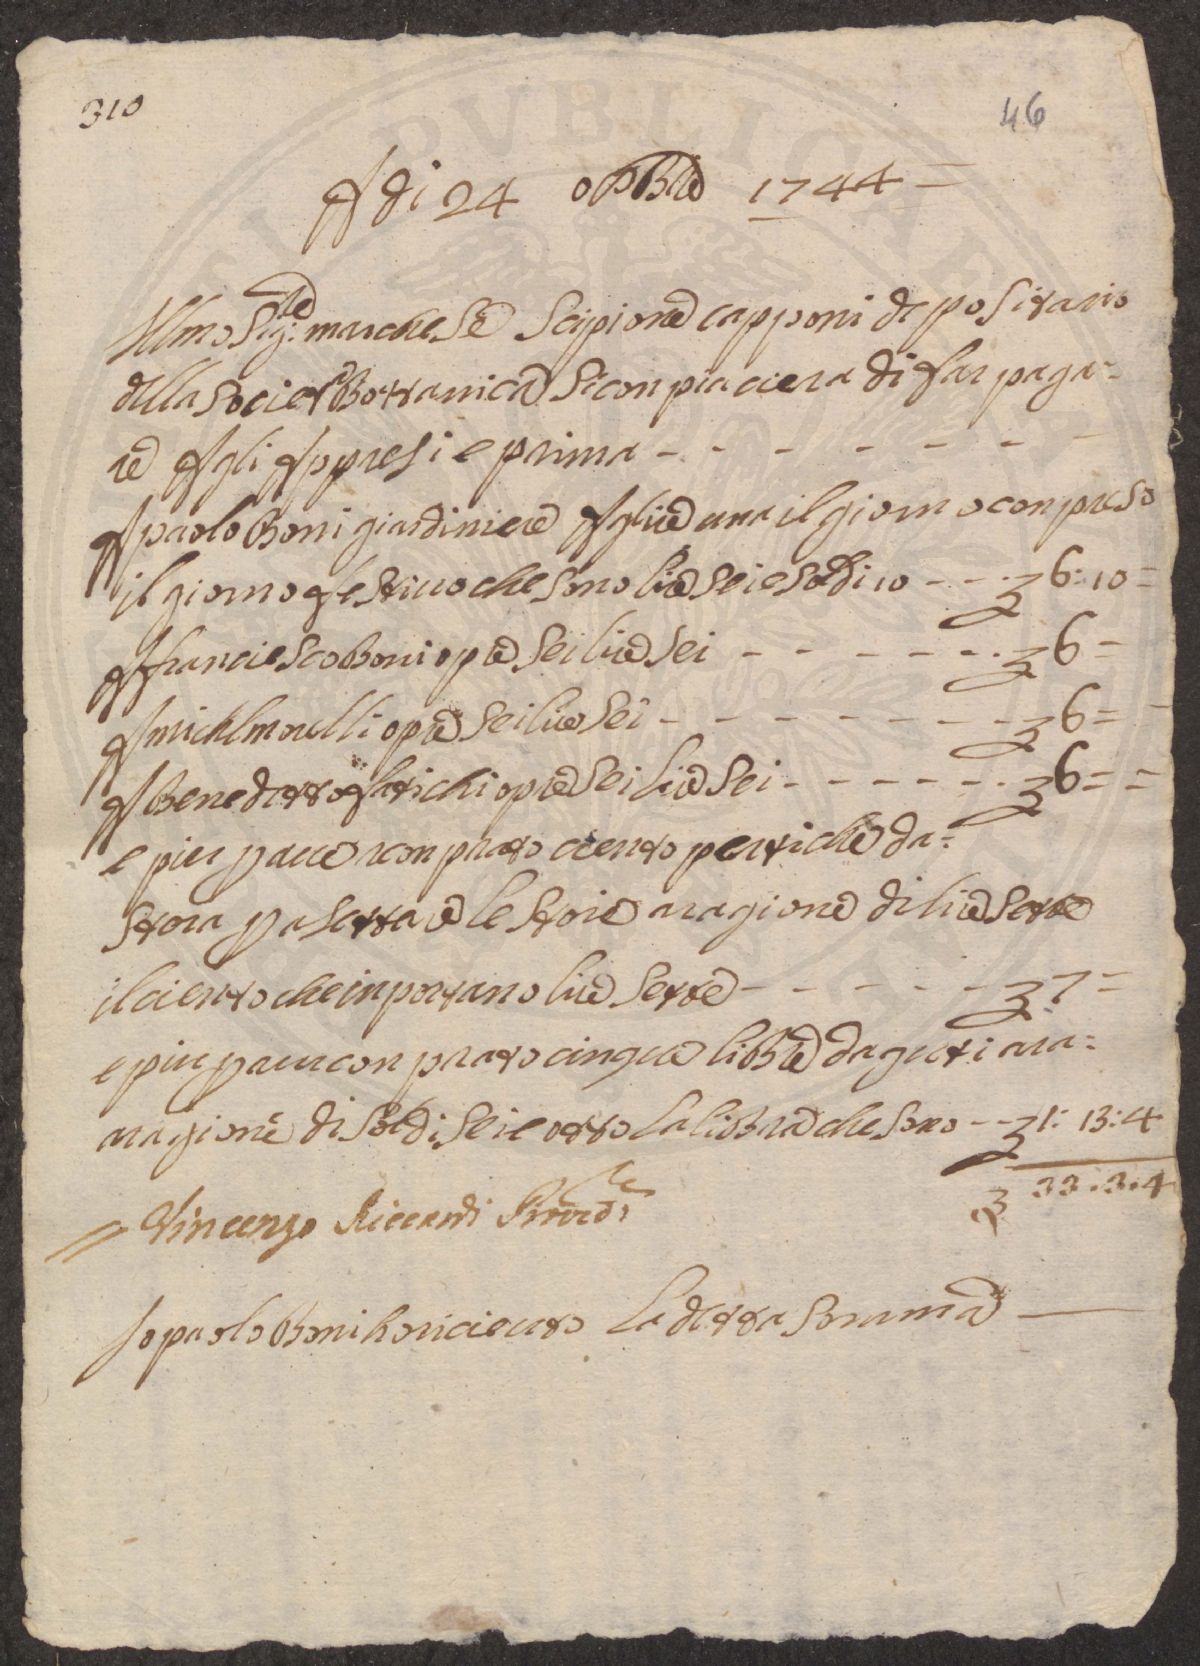 310
46
A di 24 ottobre 1744 =
Ill.mo Sig.re marchese Scipione capponi depositario
della Societa Bottanica Si conpiaciera di far paga=
re A gli Appresi e prima - - - - - - -
A paolo Boni giardiniere A lire una il giorno conpreso
il giorno festiuo che sono lire sei e soldi 10 - - - £ 6: 10 =
A franciesco Boni opre sei lire sei - - - - - - £ 6 =
A michl morelli opre sei lire sei - - - - - - - - £ 6 = =
A Benedetto opre sei lire sei - - - - - - £ 6 = =
e piu p auer conprato ciento pertiche da=
stora p a settare le storie a ragione di lire sette
il ciento che inportano lire sette - - - - - - £ 7 =
e piu p auer conprato cinque libbre daguti a ra=
ragione di soldi sei e otto la libbra che sono - - £ 1: 13: 4
£ 33. 3. 4
Vincenzo Riccardi Prov.re
Io paolo Boni ho riceuto la detta somma